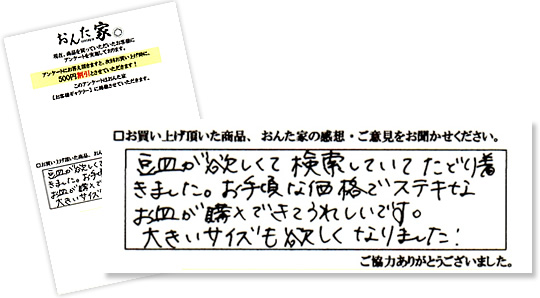 おんた家
現在、商品を買っていただいたお客様に
アンケートを実施しております。
アンケートにお答え頂きますと、次回お買い上げ時に、
500円割引とさせていただきます!
このアンケートはおんた家
【お客様ギャラリー】に掲載させていただきます。
□お買い上げ頂いた商品、おんた
豆皿が欲しくて
きました。お手頃
お皿が購入で
大きいサイズも
□お買い上げ頂いた商品、おんた家の感想・ご意見をお聞かせください。
豆皿が欲しくて検索していてたどり着
きました。お手頃な価格でステキな
お皿が購入できてうれしいです。
大きいサイズも欲しくなりました!
ご協力ありがとうございました。